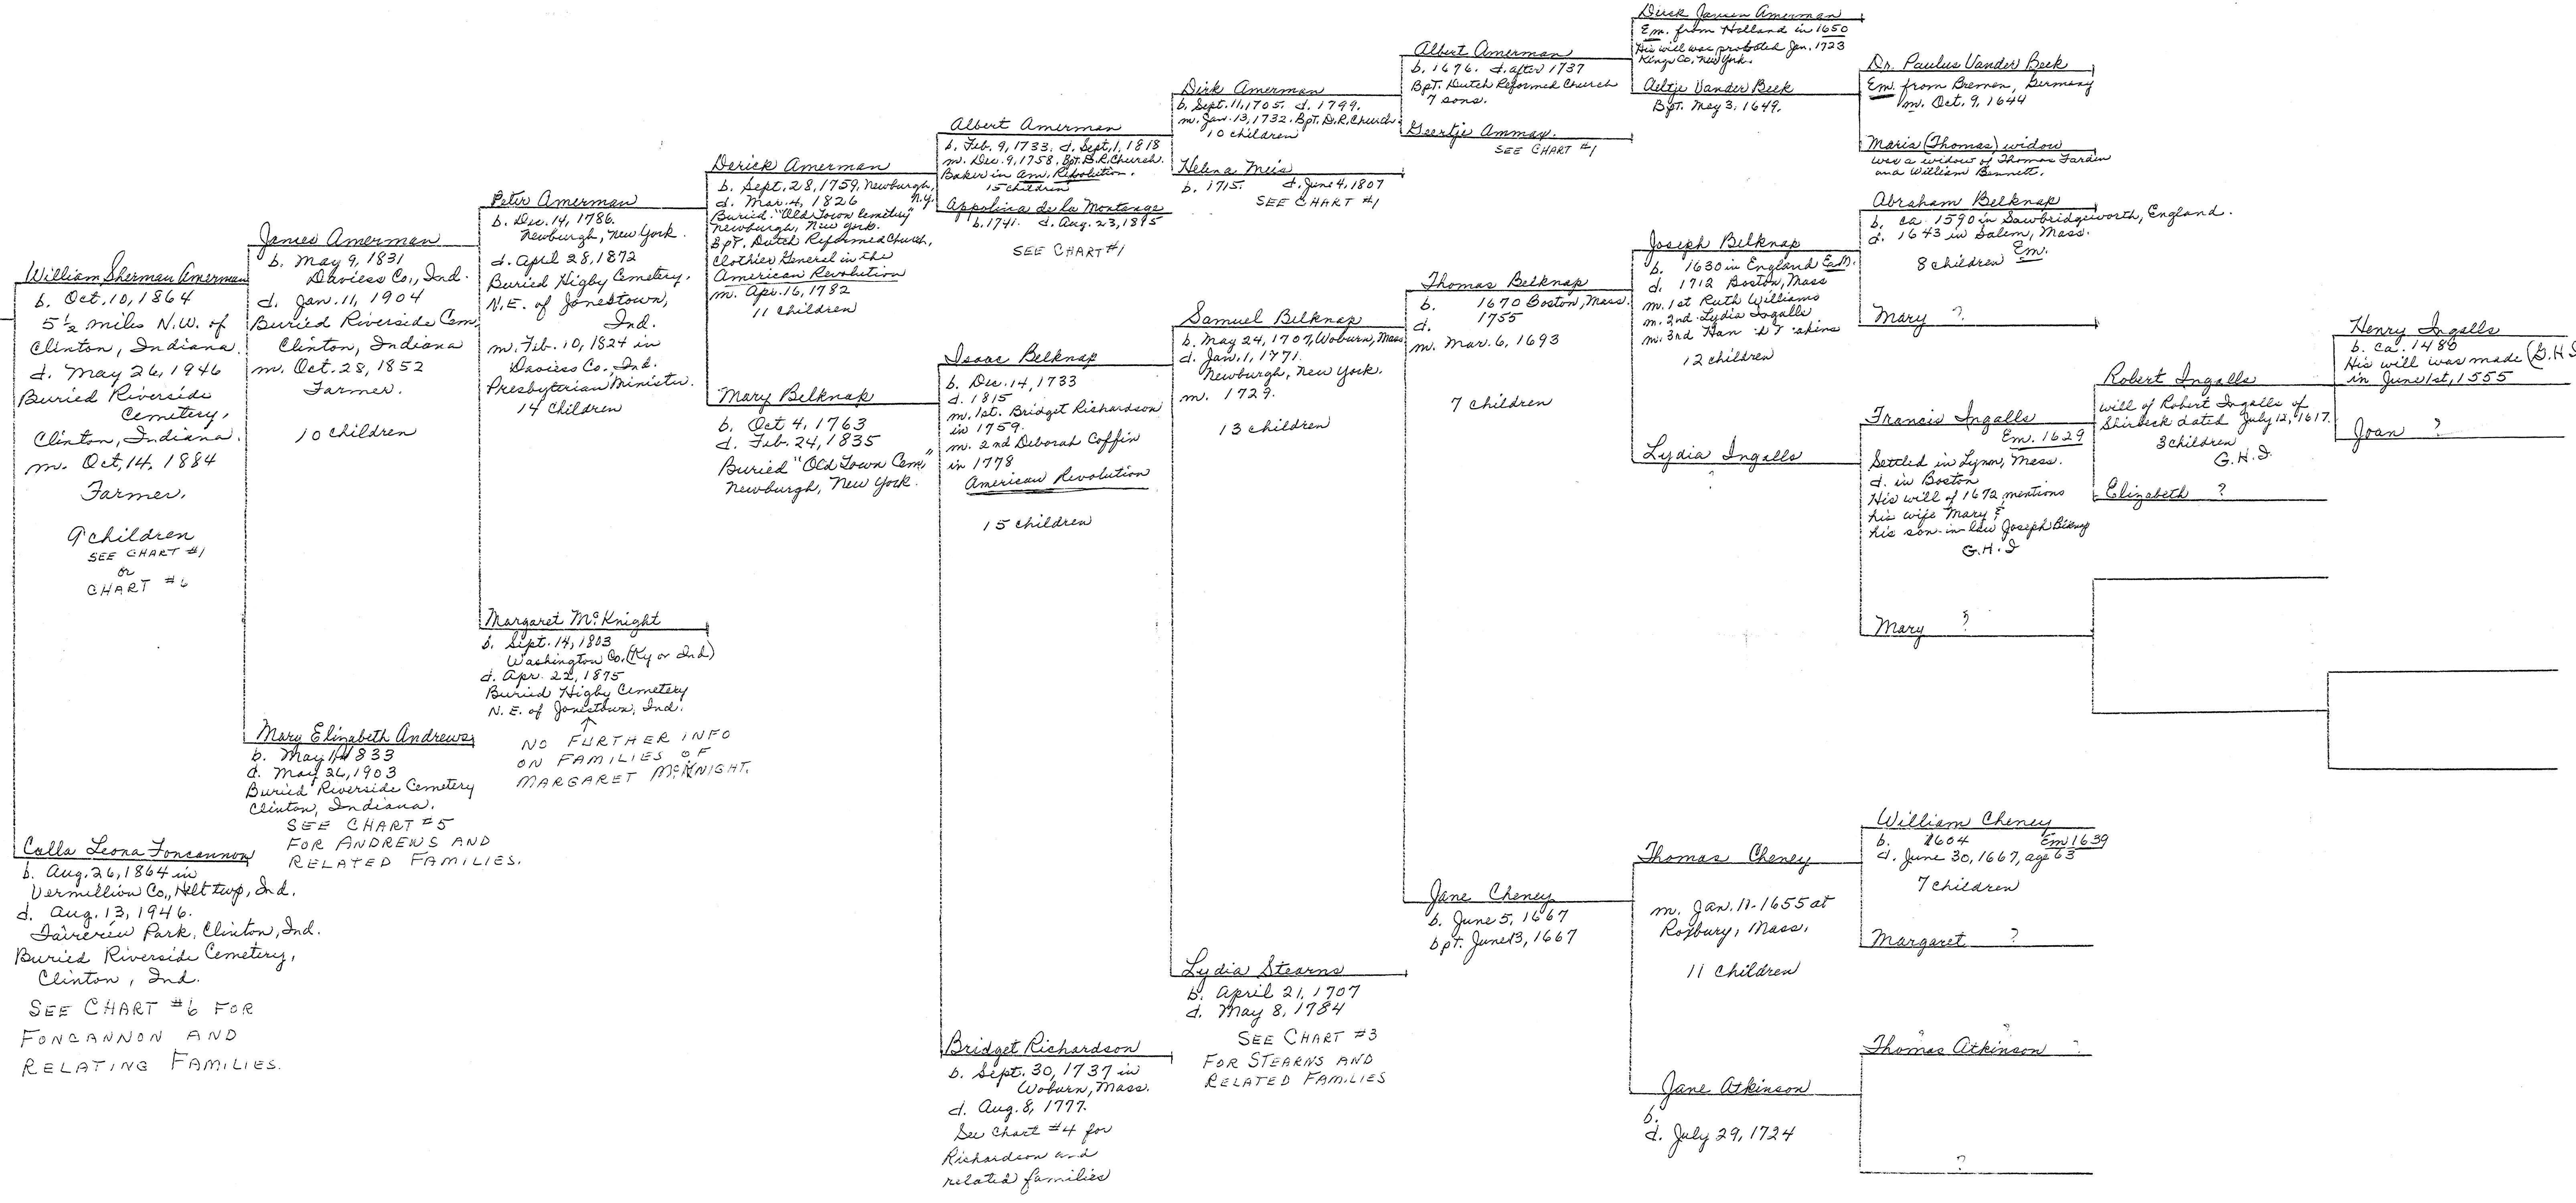 William Sherman Amerman
b. Oct. 10, 1864
5½ miles N.W. of
Clinton, Indiana.
d. May 26, 1946
Buried Riverside
Cemetery,
Clinton, Indiana.
m. Oct. 14, 1884
Farmer.
9 children
SEE CHART #1
or
CHART #6
Calla Leona Foncannon
b. Aug. 26, 1864 in
Vermillion Co., Helt twp, Ind.
d. Aug. 13, 1946.
Fairview Park, Clinton, Ind.
Buried Riverside Cemetery,
Clinton, Ind.
SEE CHART #6 FOR
FONCANNON AND
RELATING FAMILIES.
James Amerman
b. May 9, 1831
Daviess Co., Ind.
d. Jan. 11, 1904
Buried Riverside Cem.
Clinton, Indiana
m. Oct. 28, 1852
Farmer.
10 children
Mary Elizabeth Andrews
b. May 1833
d. May 26, 1903
Buried Riverside Cemetery
Clinton, Indiana.
SEE CHART #5
FOR ANDREWS AND
RELATED FAMILIES.
Peter Amerman
b. Dec. 14, 1786.
Newburgh, New York.
d. April 28, 1872
Buried Higby Cemetery.
N.E. of Jonestown,
Ind.
m. Feb. 10, 1824 in
Daviess Co., Ind.
Presbyterian Minister.
14 children
Margaret McKnight
b. Sept. 14, 1803
Washington Co. (Ky or Ind)
d. Apr. 22, 1875
Buried Higby Cemetery
N.E. of Jonestown, Ind.
NO FURTHER INFO
ON FAMILIES OF
MARGARET McKNIGHT.
Derick Amerman
b. Sept. 28, 1759, Newburgh, N.Y.
d. Mar. 4, 1826
Buried. "Old Town Cemetery"
Newburgh, New York.
Bpt. Dutch Reformed Church,
Clothier General in the
American Revolution
m. Apr. 16, 1782
11 children
Mary Belknap
b. Oct 4, 1763
d. Feb. 24, 1835
Buried "Old Town Cem."
Newburgh, New York.
Albert Amerman
b. Feb. 9, 1733. d. Sept. 1, 1818
m. Dec. 9, 1758. Bpt. D.R. Church.
Baker in Am. Revolution.
15 children
Appolina de la Montange
b. 1741. d. Aug. 23, 1895
SEE CHART #1
Isaac Belknap
b. Dec. 14, 1733
d. 1815
m. 1st. Bridget Richardson
in 1759.
m. 2nd Deborah Coffin
in 1778
American Revolution
15 children
Bridget Richardson
b. Sept. 30, 1737 in
Woburn, Mass.
d. Aug. 8, 1777.
See Chart #4 for
Richardson and
related families
Dirk Amerman
b. Sept. 11, 1705. d. 1799.
m. Jan. 13, 1732. Bpt. D.R. Church.
10 children
Helena Meis
b. 1715. d. June 4, 1807
SEE CHART #1
Samuel Belknap
b. May 24, 1707, Woburn, Mass
d. Jan. 1, 1771.
Newburgh, New York.
m. 1729.
13 children
Lydia Stearns
b. April 21, 1707
d. May 8, 1784
SEE CHART #3
FOR STEARNS AND
RELATED FAMILIES
Albert Amerman
b. 1676. d. after 1737
Bpt. Dutch Reformed Church
7 sons.
Geertje Ammax.
SEE CHART #1
Thomas Belknap
b. 1670 Boston, Mass.
d. 1755
m. Mar. 6, 1693
7 children
Jane Cheney
b. June 5, 1667
bpt. June 13, 1667
Dirck Jansen Amerman
Em. from Holland in 1650
His will was probated Jan. 1723
Kings Co. New York.
Aeltje Vander Beek
Bpt. May 3, 1649.
Joseph Belknap
b. 1630 in England Em.
d. 1712 Boston, Mass
m. 1st Ruth Williams
m. 2nd Lydia Ingalls
m. 3rd
12 children
Lydia Ingalls
?
Thomas Cheney
m. Jan. 11-1655 at
Roxbury, Mass.
11 children
Jane Atkinson
b.
d. July 29, 1724
Dr. Paulus Vander Beek
Em. from Bremen, Germany
m. Oct. 9, 1644
Maria (Thomas) widow
was a widow of Thomas Farden
and William Bennett.
Abraham Belknap
b. ca. 1590 in Sawbridgeworth, England.
d. 1643 in Salem, Mass.
8 children Em.
Mary ?
Francis Ingalls
Em. 1629
Settled in Lynn, Mass.
d. in Boston
His will of 1672 mentions
his wife Mary &
his son-in-law Joseph Belknap
G.H.I
Mary ?
William Cheney
b. 1604 Em 1639
d. June 30, 1667, age 63
7 children
Margaret ?
Thomas Atkinson ?
?
Robert Ingalls
will of Robert Ingalls of
Skirbeck dated July 12, 1617.
3 children
G.H.I.
Elizabeth ?
Henry Ingalls
b. ca. 1480
His will was made (G.H.I
in June 1st, 1555
Joan ?